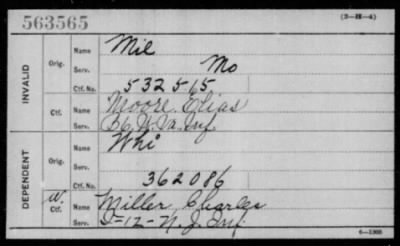 563565
(3—23—4)
INVALID
Orig.
Name Mil
Serv. Mo
Ctf. No. 532515
Ctf.
Name Moore Elias
Serv. B 6 W. Va. Inf.
DEPENDENT
Orig.
Name Whi
Serv.
Ctf. No. 362086
W. Ctf.
Name Miller Charles
Serv. D-12-N. J. Inf
6—1308